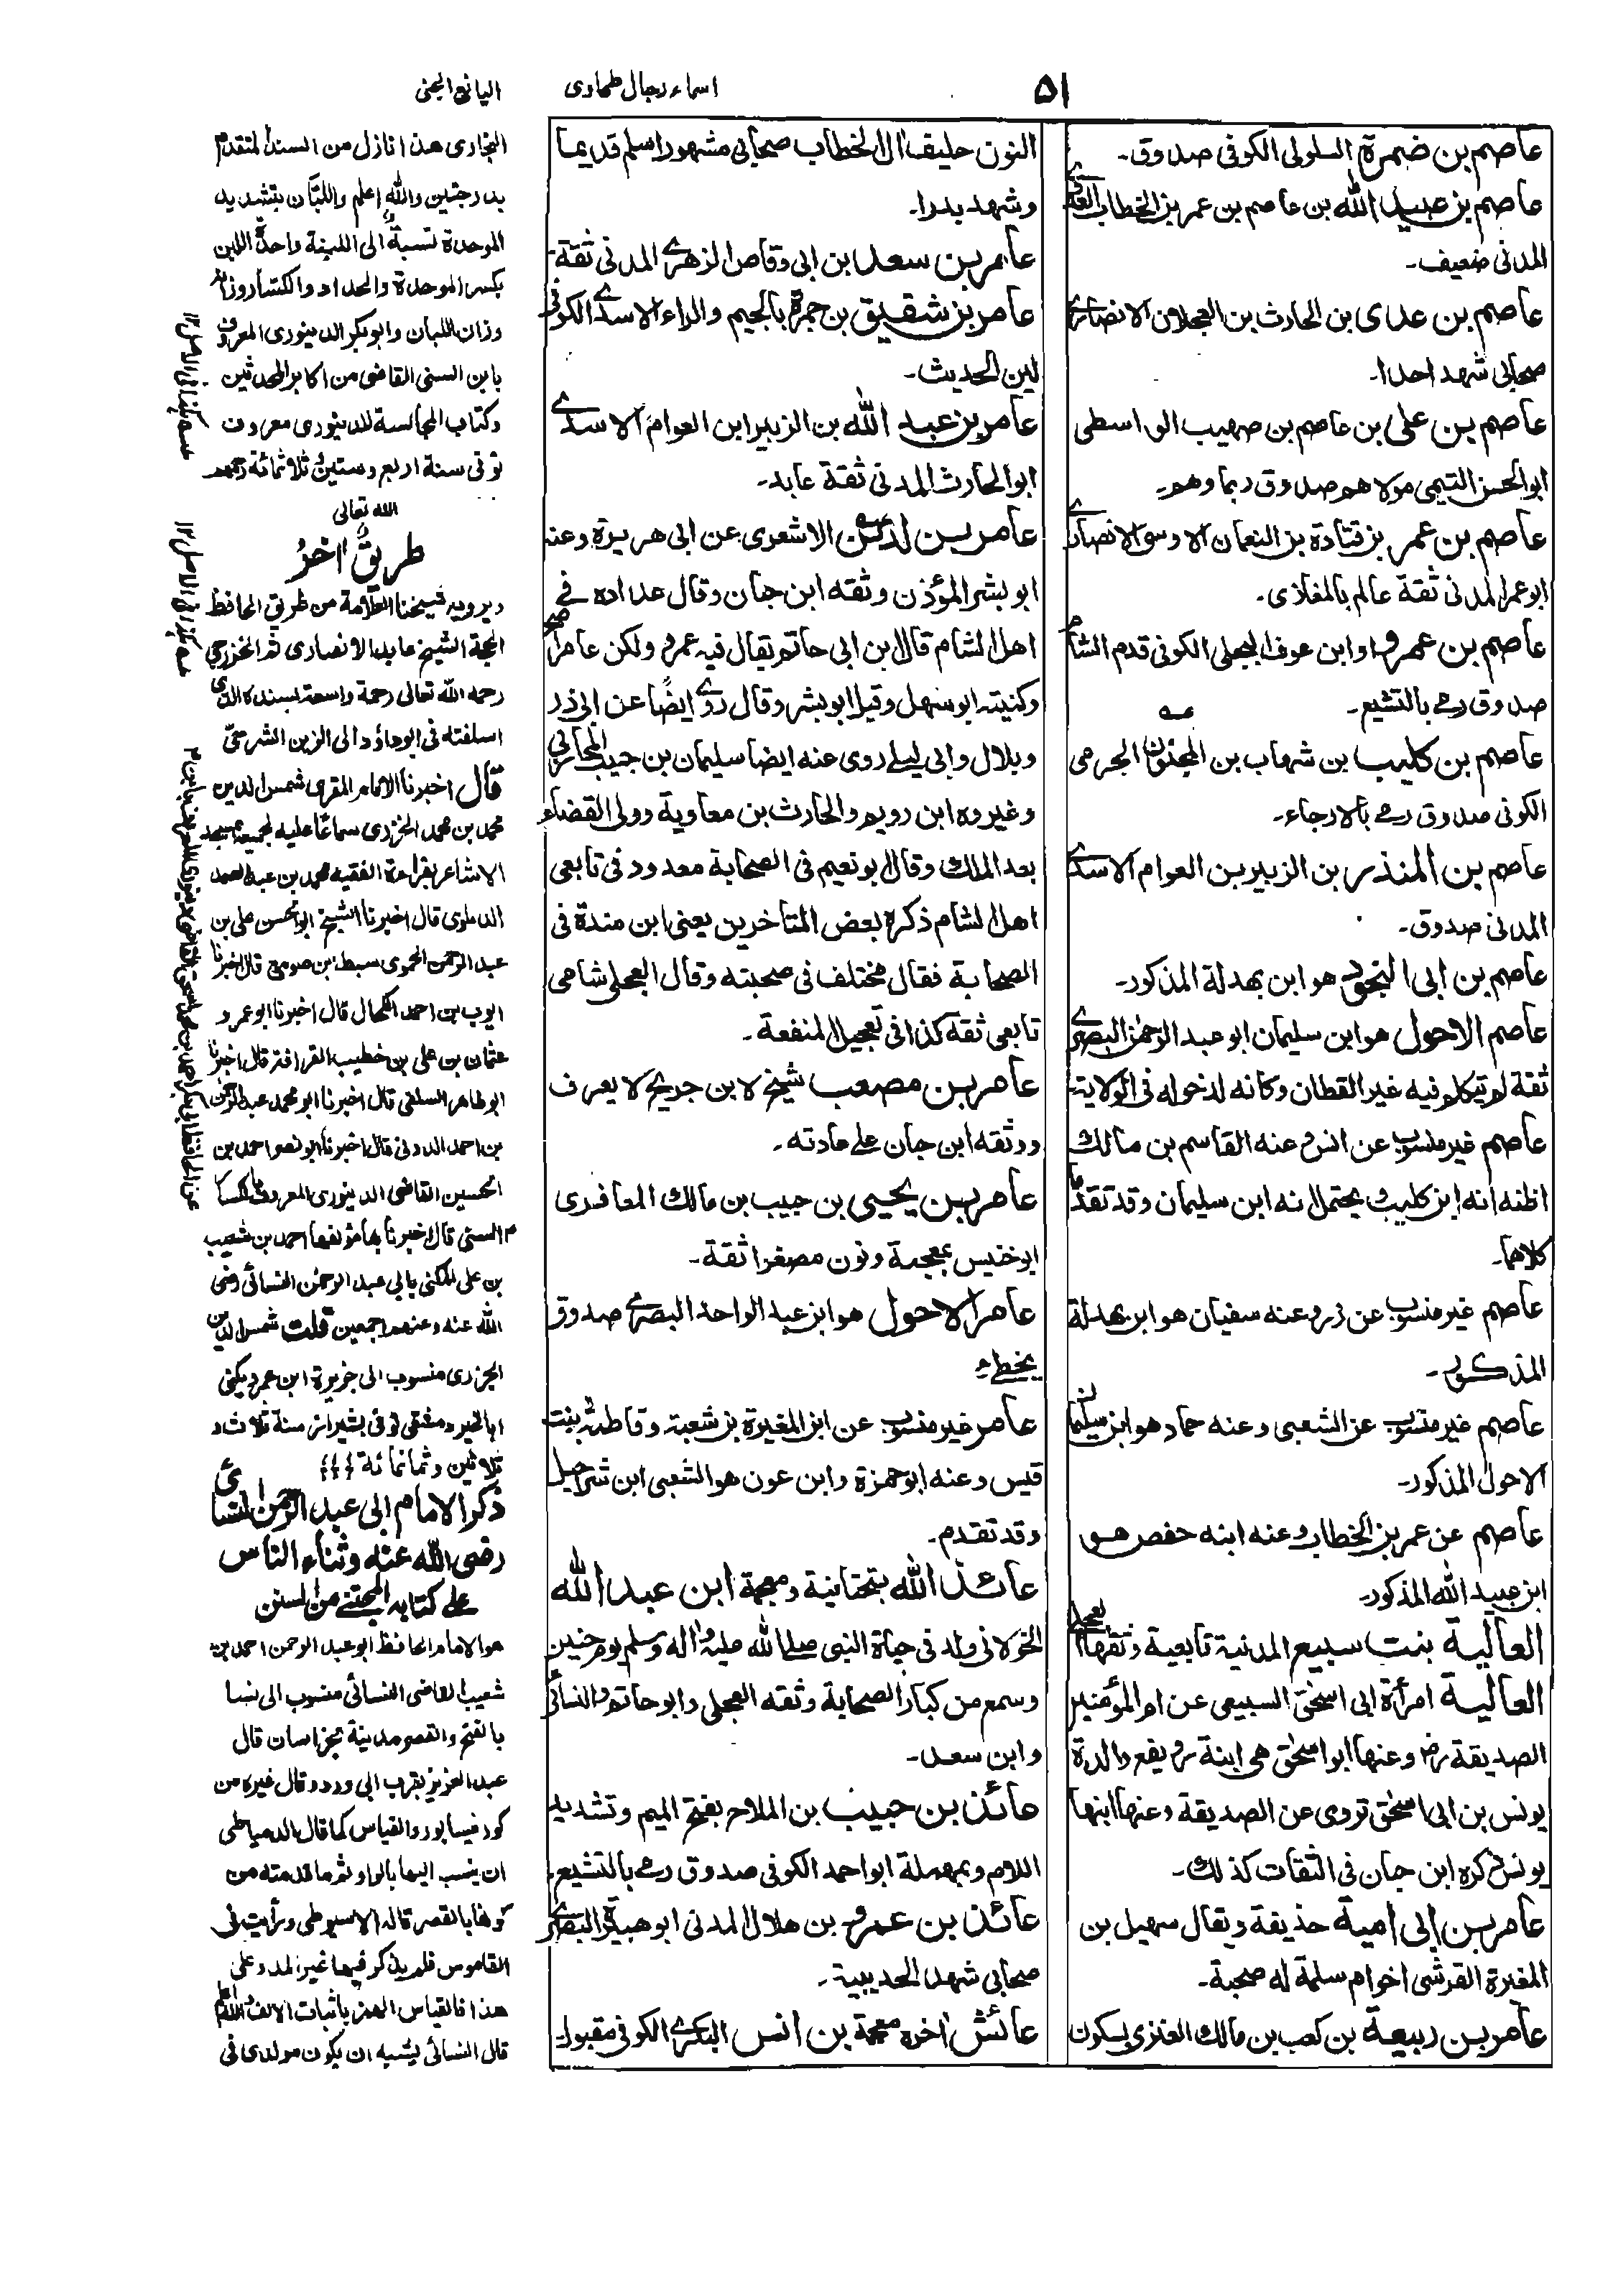 ۵۱
اسماء رجال طحاوی
الیانع الجنی
عاصم بن ضمرة السلولی الکوفی صدوق۔
عاصم بن عبید الله بن عاصم بن عمر بن الخطاب العدوی
المدنی ضعیف۔
عاصم بن عدی بن الحارث بن العجلان الانصاری
صحابی شهد احدا۔
عاصم بن علی بن عاصم بن صهیب الواسطی
ابوالحسن التیمی مولاهم صدوق ربما وهم۔
عاصم بن عمر بن قتادة بن النعمان الاوسی الانصاری
ابوعمر المدنی ثقة عالم بالمغازی۔
عاصم بن عمرو او ابن عوف البجلی الکوفی قدم الشام
صدوق رمی بالتشیع۔
عاصم بن کلیب بن شهاب بن المجنون الجرمی
الکوفی صدوق رمی بالارجاء۔
عاصم بن المنذر بن الزبیر بن العوام الاسدی
المدنی صدوق۔
عاصم بن ابی النجود هو ابن بهدلة المذکور۔
عاصم الاحول هو ابن سلیمان ابو عبد الرحمن البصری
ثقة لم یتکلم فیه غیر القطان وکانه لدخوله فی الولایة
عاصم غیر منسوب عن انس وعنه القاسم بن مالک
اظنه انه ابن کلیب ویحتمل انه ابن سلیمان وقد تقدما
کلاهما۔
عاصم غیر منسوب عن زر وعنه سفیان هو ابن بهدلة
المذکور۔
عاصم غیر منسوب عن الشعبی وعنه حماد هو ابن سلیمان
الاحول المذکور۔
عاصم عن عمر بن الخطاب وعنه ابنه حفص هو
ابن عبید الله المذکور۔
العالیة بنت سبیع المدنیة تابعیة وثقها العجلی
العالیة امرأة ابی اسحٰق السبیعی عن ام المؤمنین
الصدیقة رض وعنها ابو اسحٰق هی ابنة یفع والدة
یونس بن ابی اسحٰق تروی عن الصدیقة وعنها ابنها
یونس ذکره ابن حبان فی الثقات کذلک۔
عامر بن ابی امیة حذیفة ویقال سهیل بن
المغیرة القرشی اخوام سلمة له صحبة۔
عامر بن ربیعة بن کعب بن مالک العنزی بسکون
النون حلیف اٰل الخطاب صحابی مشهور اسلم قدیما
وشهد بدرا۔
عامر بن سعد بن ابی وقاص الزهری المدنی ثقة۔
عامر بن شقیق بن جمرة بالجیم والراء الاسدی الکوفی
لین الحدیث۔
عامر بن عبد الله بن الزبیر ابن العوام الاسدی
ابوالحارث المدنی ثقة عابد۔
عامر بن لدین الاشعری عن ابی هریرة وعنه
ابو بشر المؤذن وثقه ابن حبان وقال عداده فی
اهل الشام قال ابن ابی حاتم یقال فیه عمرو ولکن عامر اصح
وکنیته ابو سهل وقیل ابو بشر وقال روی ایضًا عن ابی ذر
وبلال وابی لیلی روی عنه ایضا سلیمان بن حبیب المحاربی
وغیره ابن رویم والحارث بن معاویة وولی القضاء
بعد الملک وقال ابو نعیم فی الصحابة معدود فی تابعی
اهل الشام ذکره بعض المتاخرین یعنی ابن مندة فی
الصحابة فقال مختلف فی صحبته وقال العجلی شامی
تابعی ثقة کذا فی تعجیل المنفعة۔
عامر بن مصعب شیخ لابن جریج لا یعرف
ووثقه ابن حبان علی عادته۔
عامر بن یحیی بن حبیب بن مالک المعافری
ابو خنیس بمعجمة ونون مصغرا ثقة۔
عامر الاحول هو ابن عبد الواحد البصری صدوق
یخطیء
عامر غیر منسوب عن ابن المغیرة بن شعبة وفاطمة بنت
قیس وعنه ابو حمزة وابن عون هو الشعبی ابن شراحیل
وقد تقدم۔
عائذ الله بتحتانیة ومعجمة ابن عبد الله
الخولانی ولد فی حیاة النبی صلی الله علیه واٰله وسلم یوم حنین
وسمع من کبار الصحابة وثقه العجلی وابو حاتم والنسائی
وابن سعد۔
عائذ بن حبیب بن الملاح بفتح المیم وتشدید
اللام وبمهملة ابو احمد الکوفی صدوق رمی بالتشیع۔
عائذ بن عمرو بن هلال المدنی ابو هبیرة البصری
صحابی شهد الحدیبیة۔
عائش اخره معجمة بن انس البکری الکوفی مقبول۔
البخاری هذا نازل من السند المتقدم
بدرجتین والله اعلم واللبّان بتشدید
الموحدة نسبةٌ الی اللبنة واحدة اللبن
بکسر الموحدة والحداد والکسار وزانه
وزان اللبان وابوبکر الدینوری المعروف
بابن السنی القاضی من اکابر المحدثین
وکتاب المجالسة للدینوری معروف
توفی سنة اربع وستین وثلاثمائة رحمهم
الله تعالی
طریق اٰخر
ویرویه شیخنا العلّامة من طریق الحافظ
الحجة الشیخ عابد الانصاری ثم الخزرجی
رحمه الله تعالی رحمة واسعة بسنده الذی
اسلفته فی ابوداؤد الی الزین الشرجی
قال اخبرنا الامام المقری شمس الدین
محمد بن محمد الجزری سماعًا علیه لجمیعه بمسجد
الاشاعر بقراءة الفقیه محمد بن عبد الصمد
قال اخبرنا الشیخ ابوالحسن علی بن
عبد الرحمن الحموی سبط بن صومع قال اخبرنا
ایوب بن احمد الکحال قال اخبرنا ابو عمرو
عثمان بن علی بن خطیب القرافة قال اخبرنا
ابو طاهر السلفی قال اخبرنا ابو محمد عبد الرحمن
بن احمد الدونی قال اخبرنا ابو نصر احمد بن
الحسین القاضی الدینوری المعروف بالکسار
السنی قال اخبرنا بها مؤلفها احمد بن شعیب
بن علی المکنی بابی عبد الرحمٰن النسائی رضی
الله عنه وعنهم اجمعین قلت شمس الدین
الجزری منسوب الی جزیرة ابن عمر ویکنی
ابا الخیر دمشقی توفی بشیراز سنة ثلاث و
ثلاثین وثمانمائة
ذکر الامام ابی عبد الرحمٰن النسائی
رضی الله عنه وثناء الناس
علی کتابه المجتنی من السنن
هو الامام الحافظ ابو عبد الرحمن احمد بن
شعیب القاضی النسائی منسوب الی نسا
بالفتح والقصر مدینة بخراسان قال
عبد العزیز بقرب ابی ورد وقال غیره من
کور نیسابور والقیاس کما قال الدمیاطی
ان ینسب الیها بالواو ثم ما قدمته من
کونها بالقصر قاله الاسیوطی ورأیت فی
القاموس فلم یذکر فیها غیر المد وعلی
هذا فالقیاس الهمز باثبات الالف والله اعلم
قال النسائی یشبه ان یکون مولدی فی